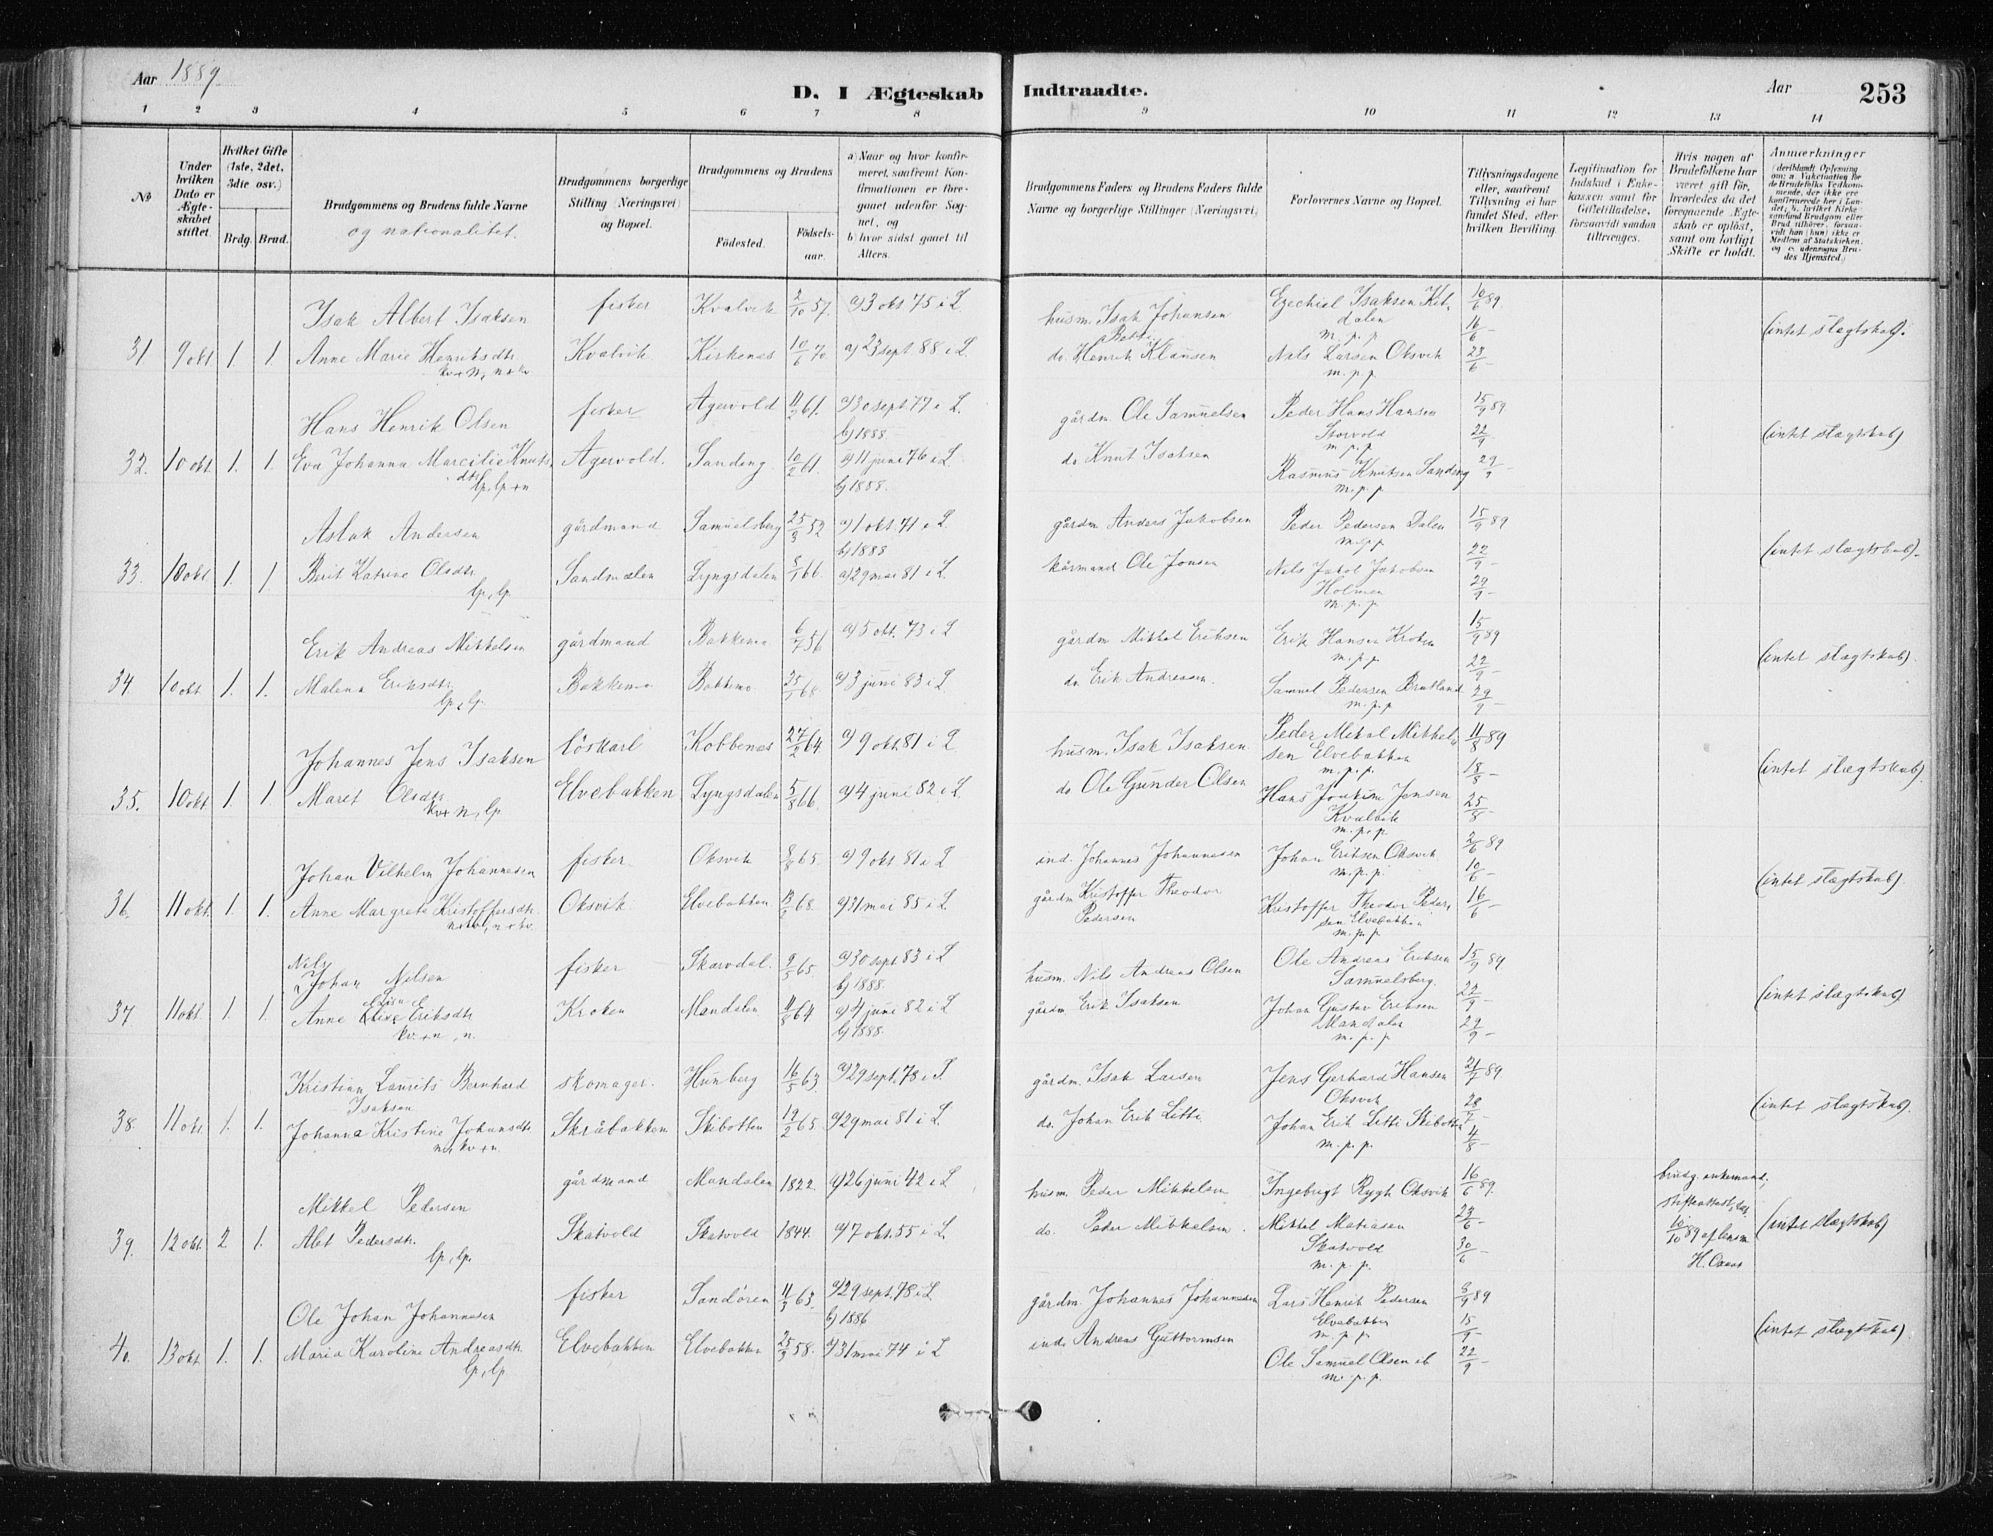 Aar 1889
D. I Ægteskab Indtraadte.
Aar 253
1 2 3 4 5 6 7 8 9 10 11 12 13 14
No
Under hvilken Dato er Ægteskabet stiftet.
Hvilket Gifte (1ste, 2det, 3die osv.)
Brdg. Brud.
Brudgommens og Brudens fulde Navne
og nationalitet.
Brudgommens borgerlige Stilling (Næringsvei) og Bopæl.
Brudgommens og Brudens
Födested. Födsels-aar.
a) Naar og hvor konfirmeret, saafremt Konfirmationen er foregaaet udenfor Sognet, og
b) hvor sidst gaaet til Alters.
Brudgommens Faders og Brudens Faders fulde Navne og borgerlige Stillinger (Næringsvei)
Forlovernes Navne og Bopæl.
Tillysningsdagene eller, saafremt Tillysning ei har fundet Sted, efter hvilken Bevilling.
Legitimation for Indskud i Enkekassen samt for Giftetilladelse, forsaavidt saadan tiltrænges.
Hvis nogen af Brudefolkene har været gift för, hvorledes da det foregaaende Ægteskab er oplöst, samt om lovligt Skifte er holdt.
Anmærkninger
31 9 okt 1. 1.
Isak Albert Isaksen fisker Kvalvik 2/10 57. a) 3 okt 75 i L
husm. Isak Johansen
Ezechiel Isaksen Kitdalen
m.p.p 16/6 89
(intet slægtskab).
Anne Marie Henriksdtr Kvalvik Kirkenes 10/6 70 a) 23 sept 88 i L.
kv+n, n+kv
do. Henrik Klausen
Nils Larsen Oksvik 23/6 –
m.p.p
32. 10 okt. 1. 1.
Hans Henrik Olsen fisker Agervold 61. a) 30 sept. 77 i L.
b) 1888
gårdm. Ole Samuelsen
Peder Hans Hansen 15/9 89
Storvold 22/9 –
m.p.p
(intet slægtskab)
Eva Johanna Marcilie Knutsdtr Agervold. Sandeng 10/2 61. a) 11 juni 76 i L.
lp, lp+n b) 1888.
do Knut Isaksen
Rasmus Knutsen Sandeng 29/9 –
m.p.p
33. 10 okt 1. 1.
Aslak Andersen gårdmand Samuelsberg 25/3 52 a) 1 okt 71 i L
b) 1888
gårdm. Anders Jakobsen
Peder Pedersen Dalen 15/9 89
m.p.p 22/9 –
(intet slægtskab).
Berit Katrine Olsdtr Sandmælen Lyngsdalen 66. a) 29 mai 81 i L.
lp, lp.
kårmand Ole Jonsen
Nils Jakob Jakobsen
Holmen 29/9 –
m.p.p
34. 10 okt 1. 1.
Erik Andreas Mikkelsen gårdmand Bakkemo 6/7 56 a) 5 okt. 73 i L
gårdm. Mikkel Eriksen
Erik Hansen Kroken 15/9 89
m.p.p 22/9 –
(intet slægtskab).
Malena Eriksdtr Bakkemo Bakkemo 68. a) 3 juni 83 i L
lp, lp.
do Erik Andreasen.
Samuel Pedersen Bratland 29/9 –
m.p.p
35. 10 okt 1. 1.
Johannes Jens Isaksen löskarl Kobbenes 27/2 64 a) 9 okt. 81 i L
husm. Isak Isaksen
Peder Mikal Mikkelsen Elvebakken 11/8 89
m.p.p. 18/8 –
(intet slægtskab).
Maret Olsdtr Elvebakken Lyngsdalen 5/8 66. a) 4 juni 82 i L.
kv+n, lp
do Ole Gunder Olsen
Hans Joakim Jensen
Kvalvik 25/8 –
m.p.p
36. 11 okt. 1. 1.
Johan Vilhelm Johannesen fisker Oksvik 65. a) 9 okt 81 i L
ind. Johannes Johannesen
Johan Eriksen Oksvik 2/6 89
m.p.p. 10/6 –
(intet slægtskab).
Anne Margrete Kristoffersdtr Oksvik Elvebakken 68. a) 31 mai 85 i L.
n+kv, n+kv.
gårdm Kristoffer Theodor Pedersen
Kristoffer Theodor Pedersen Elvebakken 16/6 –
m.p.p
37 11 okt 1. 1.
Nils Johan Nilsen fisker Skarvdal. 65. a) 30 sept. 83 i L
b) 1888.
husm. Nils Andreas Olsen
Ole Andreas Eriksen 15/9 89
Samuelsberg. 22/9 –
(intet slægtskab)
Anne Eriksdtr Kroken Mandalen 64 a) 4 juni 82 i L
kv.+n, n. b) 1888.
gårdm. Erik Isaksen
Johan Gustav Eriksen
Mandalen 29/9 –
m.p.p
38. 11 okt 1. 1.
Kristian Laurits Bernhard Isaksen skomager. Hunberg 16/5 63. a) 29 sept. 78 i L.
gårdm. Isak Larsen
Jens Gerhard Hansen 21/7 89
Oksvik 28/7 –
(intet slægtskab).
Johanna Kristine Johansdtr Skråbakken Skibotten 65. a) 29 mai 81 i L.
n, kv+n.
do. Johan Erik Litti
Johan Erik Litti Skibotten 4/8 –
m.p.p.
39. 12 okt 2 1.
Mikkel Pedersen gårdmand Mandalen 1822. a) 26 juni 42 i L
husm. Peder Mikkelsen
Ingebrigt Rygh Oksvik 16/6 89.
brudg. enkemand;
skifteattest,
10/10 89 af lensm.
H.
(intet slægtskab)
Alet Pedersdtr. Skatvold Skatvold 1844. a) 7 okt. 55 i L
lp, lp.
do. Peder Mikkelsen.
Mikkel Matiasen 23/6 –
Skatvold 30/6 –
m.p.p.
40. 13 okt. 1. 1.
Ole Johan Johannesen fisker Sandören 11/3 63. a) 29 sept. 78 i L
b) 1886
gårdm. Johannes Johannesen
Lars Henrik Pedersen 89
Elvebakken 15/9 –
m.p.p
(intet slægtskab)
Maria Karoline Andreasdtr Elvebakken Elvebakken 25/3 58. a) 31 mai 74 i L
lp, lp
ind. Andreas Guttormsen
Ole Samuel Olsen ib 22/9 –
m.p.p.